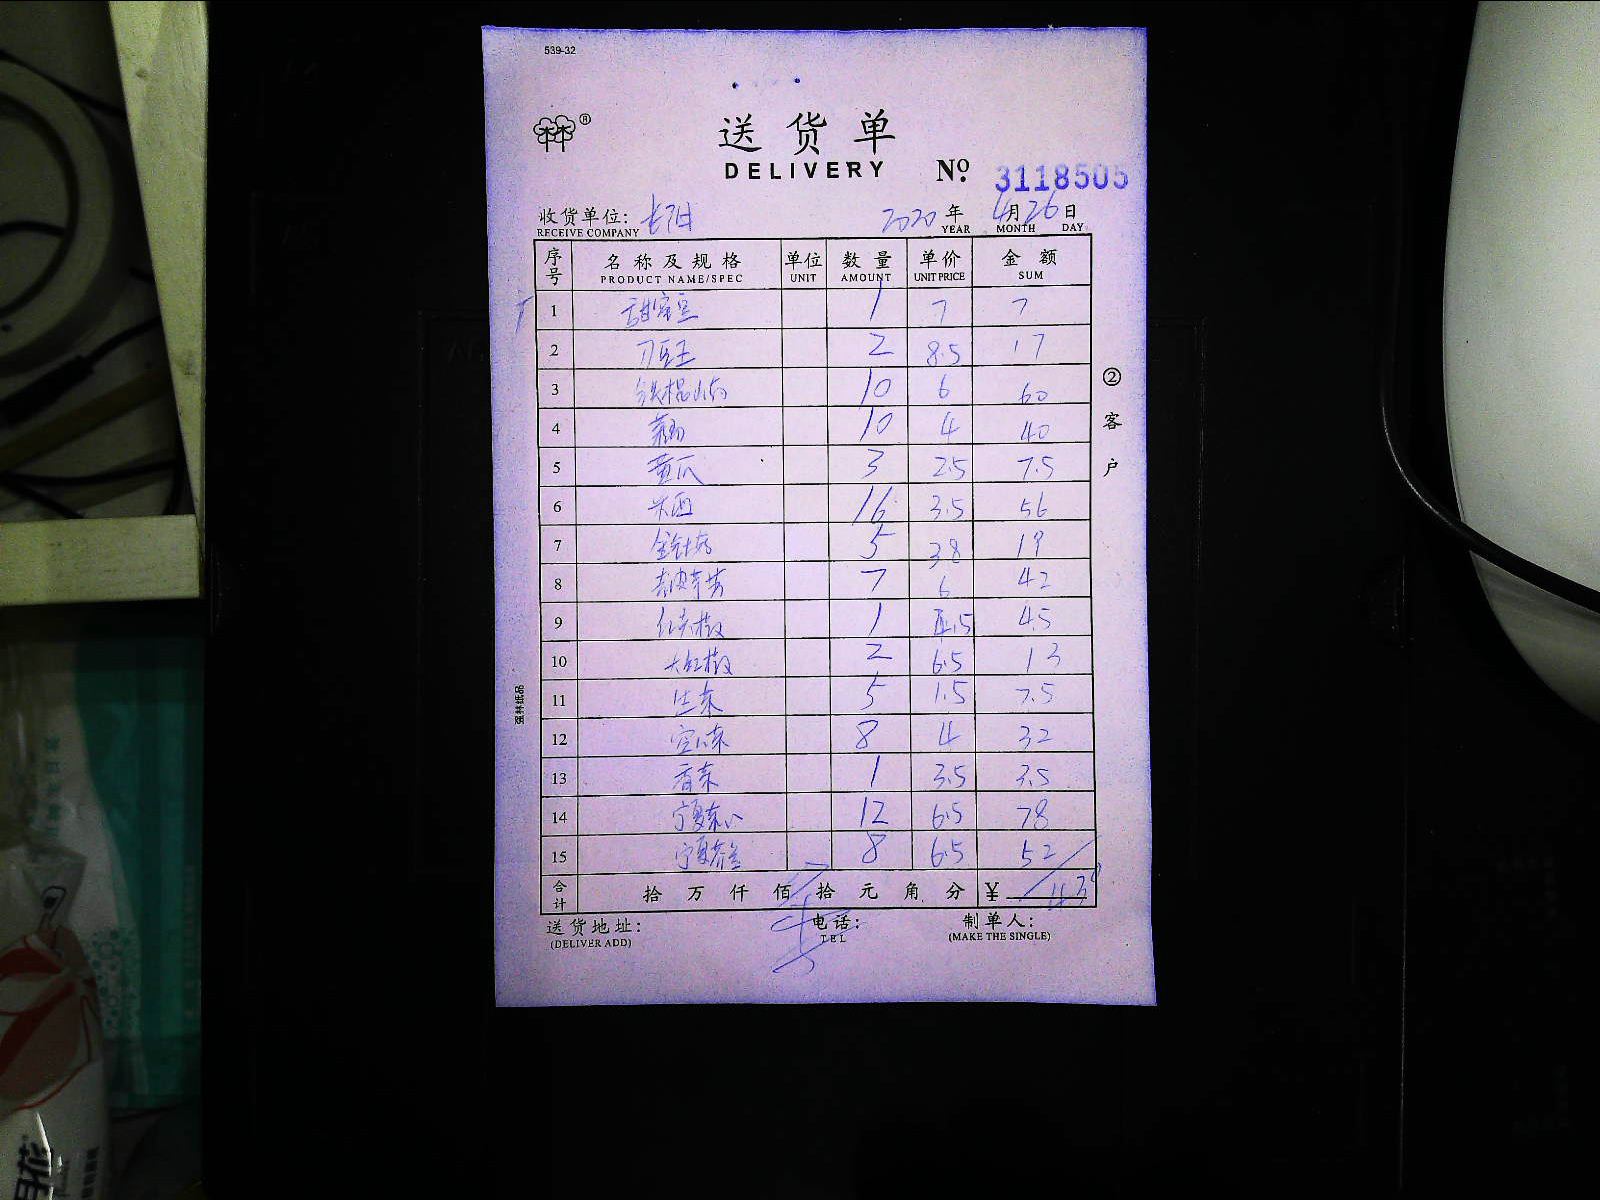 539-32
®
送货单
DELIVERY № 3118505
收货单位: 2020年4月26日
RECEIVE COMPANY YEAR MONTH DAY
序号 名称及规格 单位 数量 单价 金额
PRODUCT NAME/SPEC UNIT AMOUNT UNIT PRICE SUM
1 甜蜜豆 1 7 7
2 刀豆王 2 8.5 17
3 铁棍山药 10 6 60
4 10 4 40
5 黄瓜 3 2.5 7.5
6 米西 16 3.5 56
7 金针菇 5 3.8 19
8 去皮芋艿 7 6 42
9 红尖椒 1 4.5 4.5
10 大红椒 2 6.5 13
11 生菜 5 1.5 7.5
12 空心菜 8 4 32
13 香菜 1 3.5 3.5
14 宁夏菜心 12 6.5 78
15 宁夏芥兰 8 6.5 52
合计 拾万仟佰拾元角分 ¥ 439
送货地址: 电话: 制单人:
(DELIVER ADD) TEL (MAKE THE SINGLE)
②客户
强林纸品